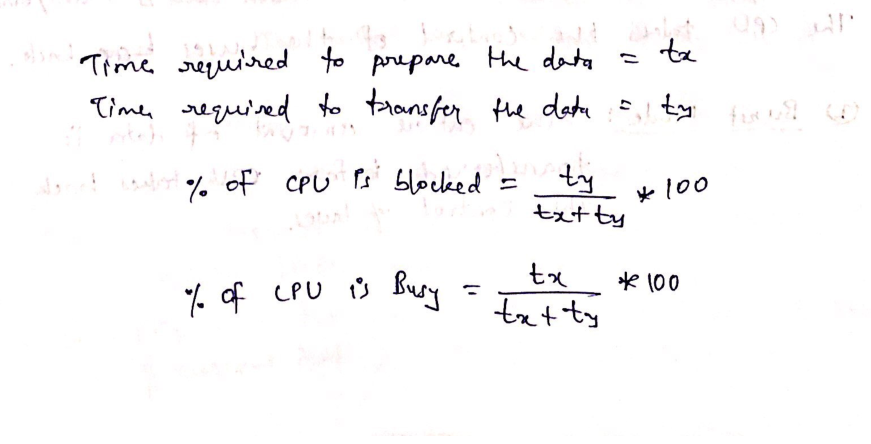 Time required to prepare the data = tx
Time required to transfer the data = ty
% of CPU is blocked = ty / tx + ty * 100
% of CPU is Busy = tx / tx + ty * 100